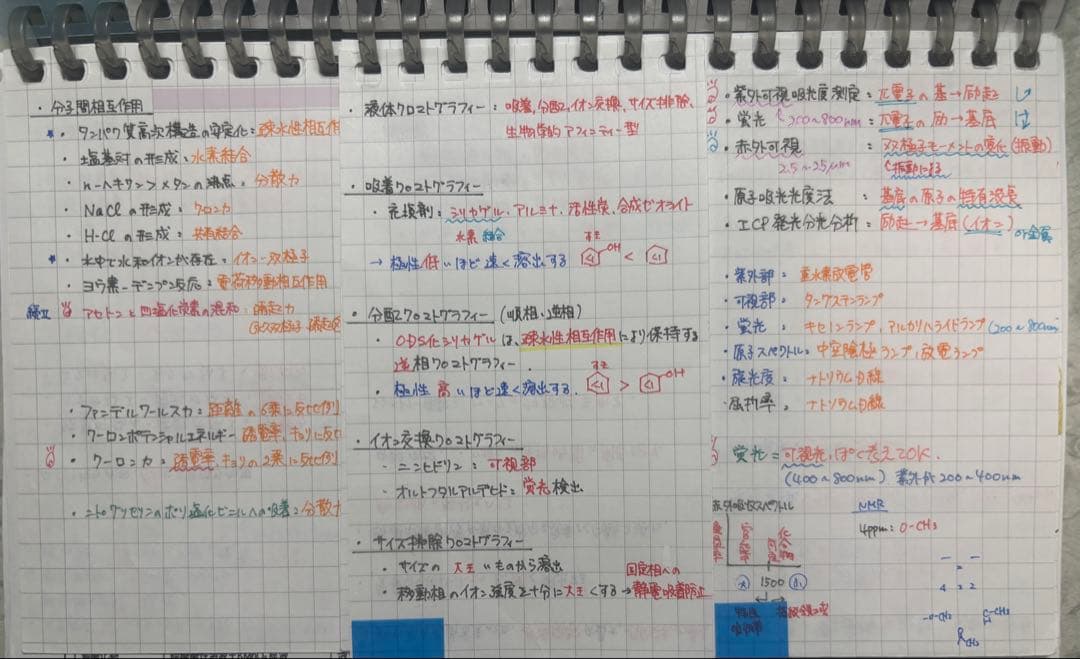 ・分子間相互作用
・タンパク質高次構造の安定化：疎水性相互作用
・塩基対の形成：水素結合
・n-ヘキサン＞メタンの沸点：分散力
・NaClの形成：クーロン力
・H-Clの形成：共有結合
・水中で水和イオンが存在：イオン-双極子
・ヨウ素-デンプン反応：電荷移動相互作用
アセトンと四塩化炭素の混和：誘起力
・ファンデルワールス力：距離の6乗に反比例
・クーロンポテンシャルエネルギー：誘電率、キョリに反比
・クーロン力：誘電率、キョリの2乗に反比例
・ニトログリセリンのポリ塩化ビニルへの吸着：分散力
・液体クロマトグラフィー：吸着、分配、イオン交換、サイズ排除、
生物学的アフィニティー型
・吸着クロマトグラフィー
・充填剤：シリカゲル、アルミナ、活性炭、合成ゼオライト
水素結合
→ 極性低いほど速く溶出する
OH <
・分配クロマトグラフィー（順相・逆相）
・ODS化シリカゲルは、疎水性相互作用により保持する
逆相クロマトグラフィー.
・極性高いほど速く溶出する.
> OH
・イオン交換クロマトグラフィー
・ニンヒドリン：可視部
・オルトフタルアルデヒド：蛍光検出
・サイズ排除クロマトグラフィー
・サイズの大きいものから溶出
固定相への
・移動相のイオン強度を十分に大きくする→静電吸着防止
・紫外可視吸光度測定：π電子の基→励起
・蛍光 200～800nm：π電子の励→基底
・赤外可視：双極子モーメントの変化（振動）
2.5～25μm
振動による
・原子吸光光度法：基底の原子の特有波長
・ICP発光分光分析：励起→基底（イオン）or金属
・紫外部：重水素放電管
・可視部：タングステンランプ
・蛍光：キセノンランプ、アルカリハライドランプ（200～800nm）
・原子スペクトル：中空陰極ランプ、放電ランプ
・旋光度：ナトリウムD線
・屈折率：ナトリウムD線
蛍光＝可視光っぽく考えてOK.
（400～800nm）紫外が200～400nm
赤外吸収スペクトル
NMR
4ppm：O-CH3
官能基
化合物
同定
大 1500 小
特性
吸収帯
指紋領域
4 3 2
-O-CH2
C-CH3
CH3